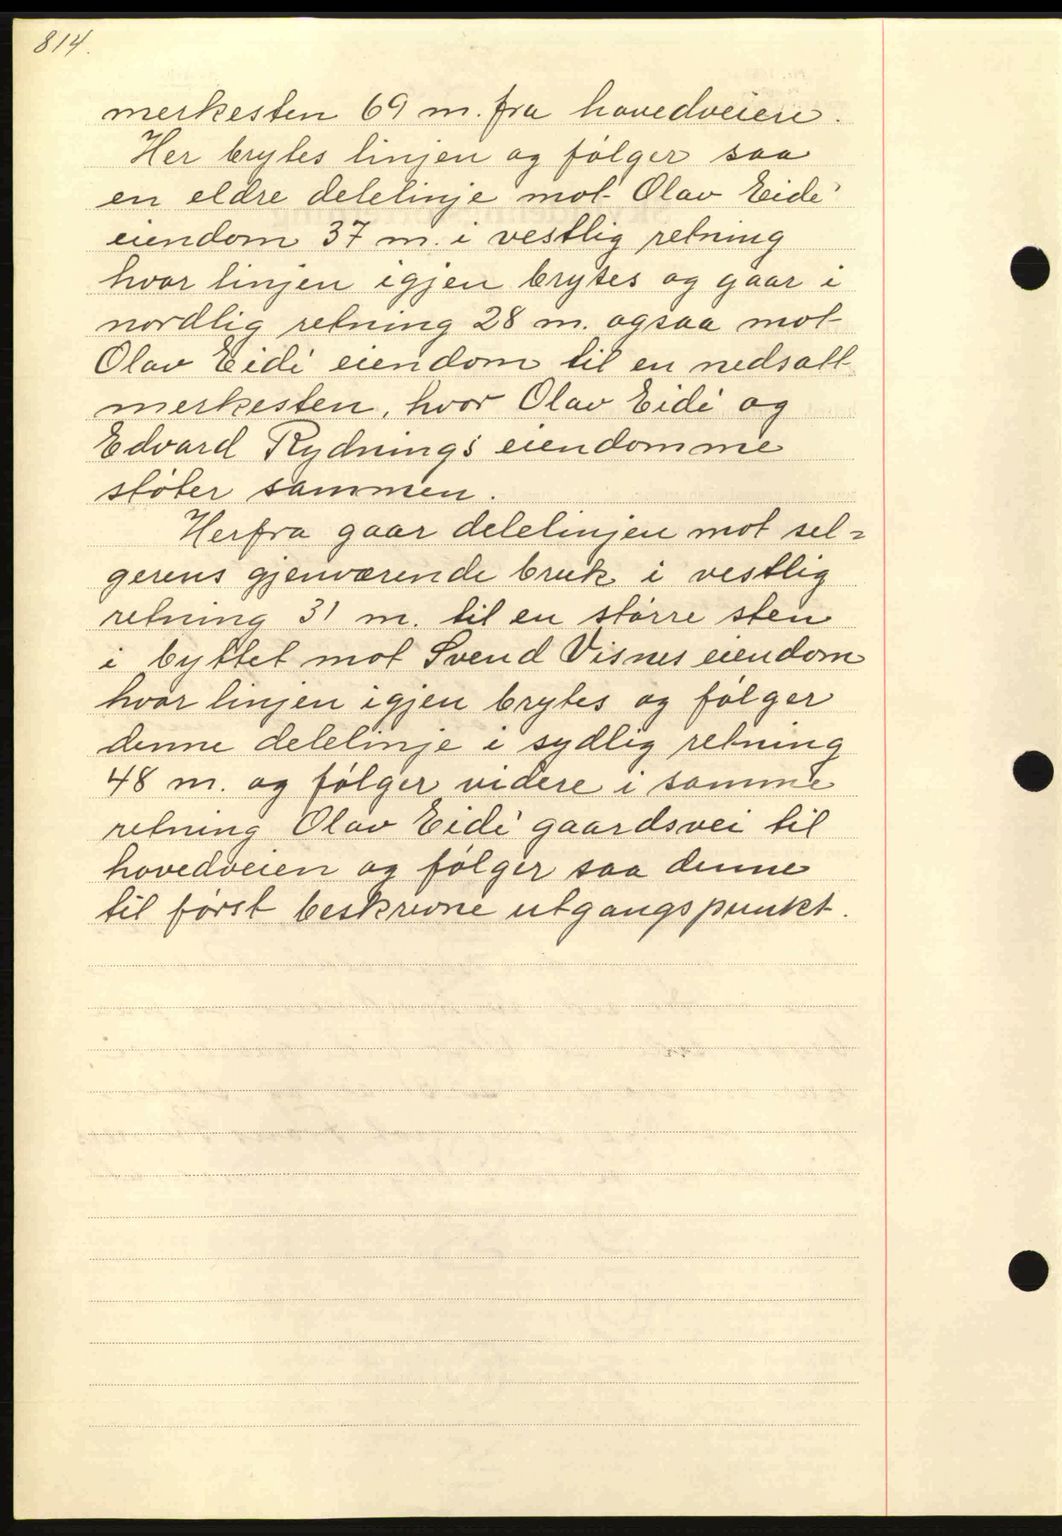 814.
merkesten 69 m. fra hovedveien.
Her brytes linjen og følger saa
en eldre delelinje mot Olav Eide'
eiendom 37 m. i vestlig retning
hvor linjen igjen brytes og gaar i
nordlig retning 28 m. ogsaa mot
Olav Eide' eiendom til en nedsatt
merkesten, hvor Olav Eide' og
Edvard Rydning's eiendomme
støter sammen.
Herfra gaar delelinjen mot sel=
gerens gjenværende bruk i vestlig
retning 31 m. til en større sten
i byttet mot Svend Visnes eiendom
hvor linjen igjen brytes og følger
denne delelinje i sydlig retning
48 m. og følger videre i samme
retning Olav Eide' gaardsvei til
hovedveien og følger saa denne
til først beskrevne utgangspunkt.